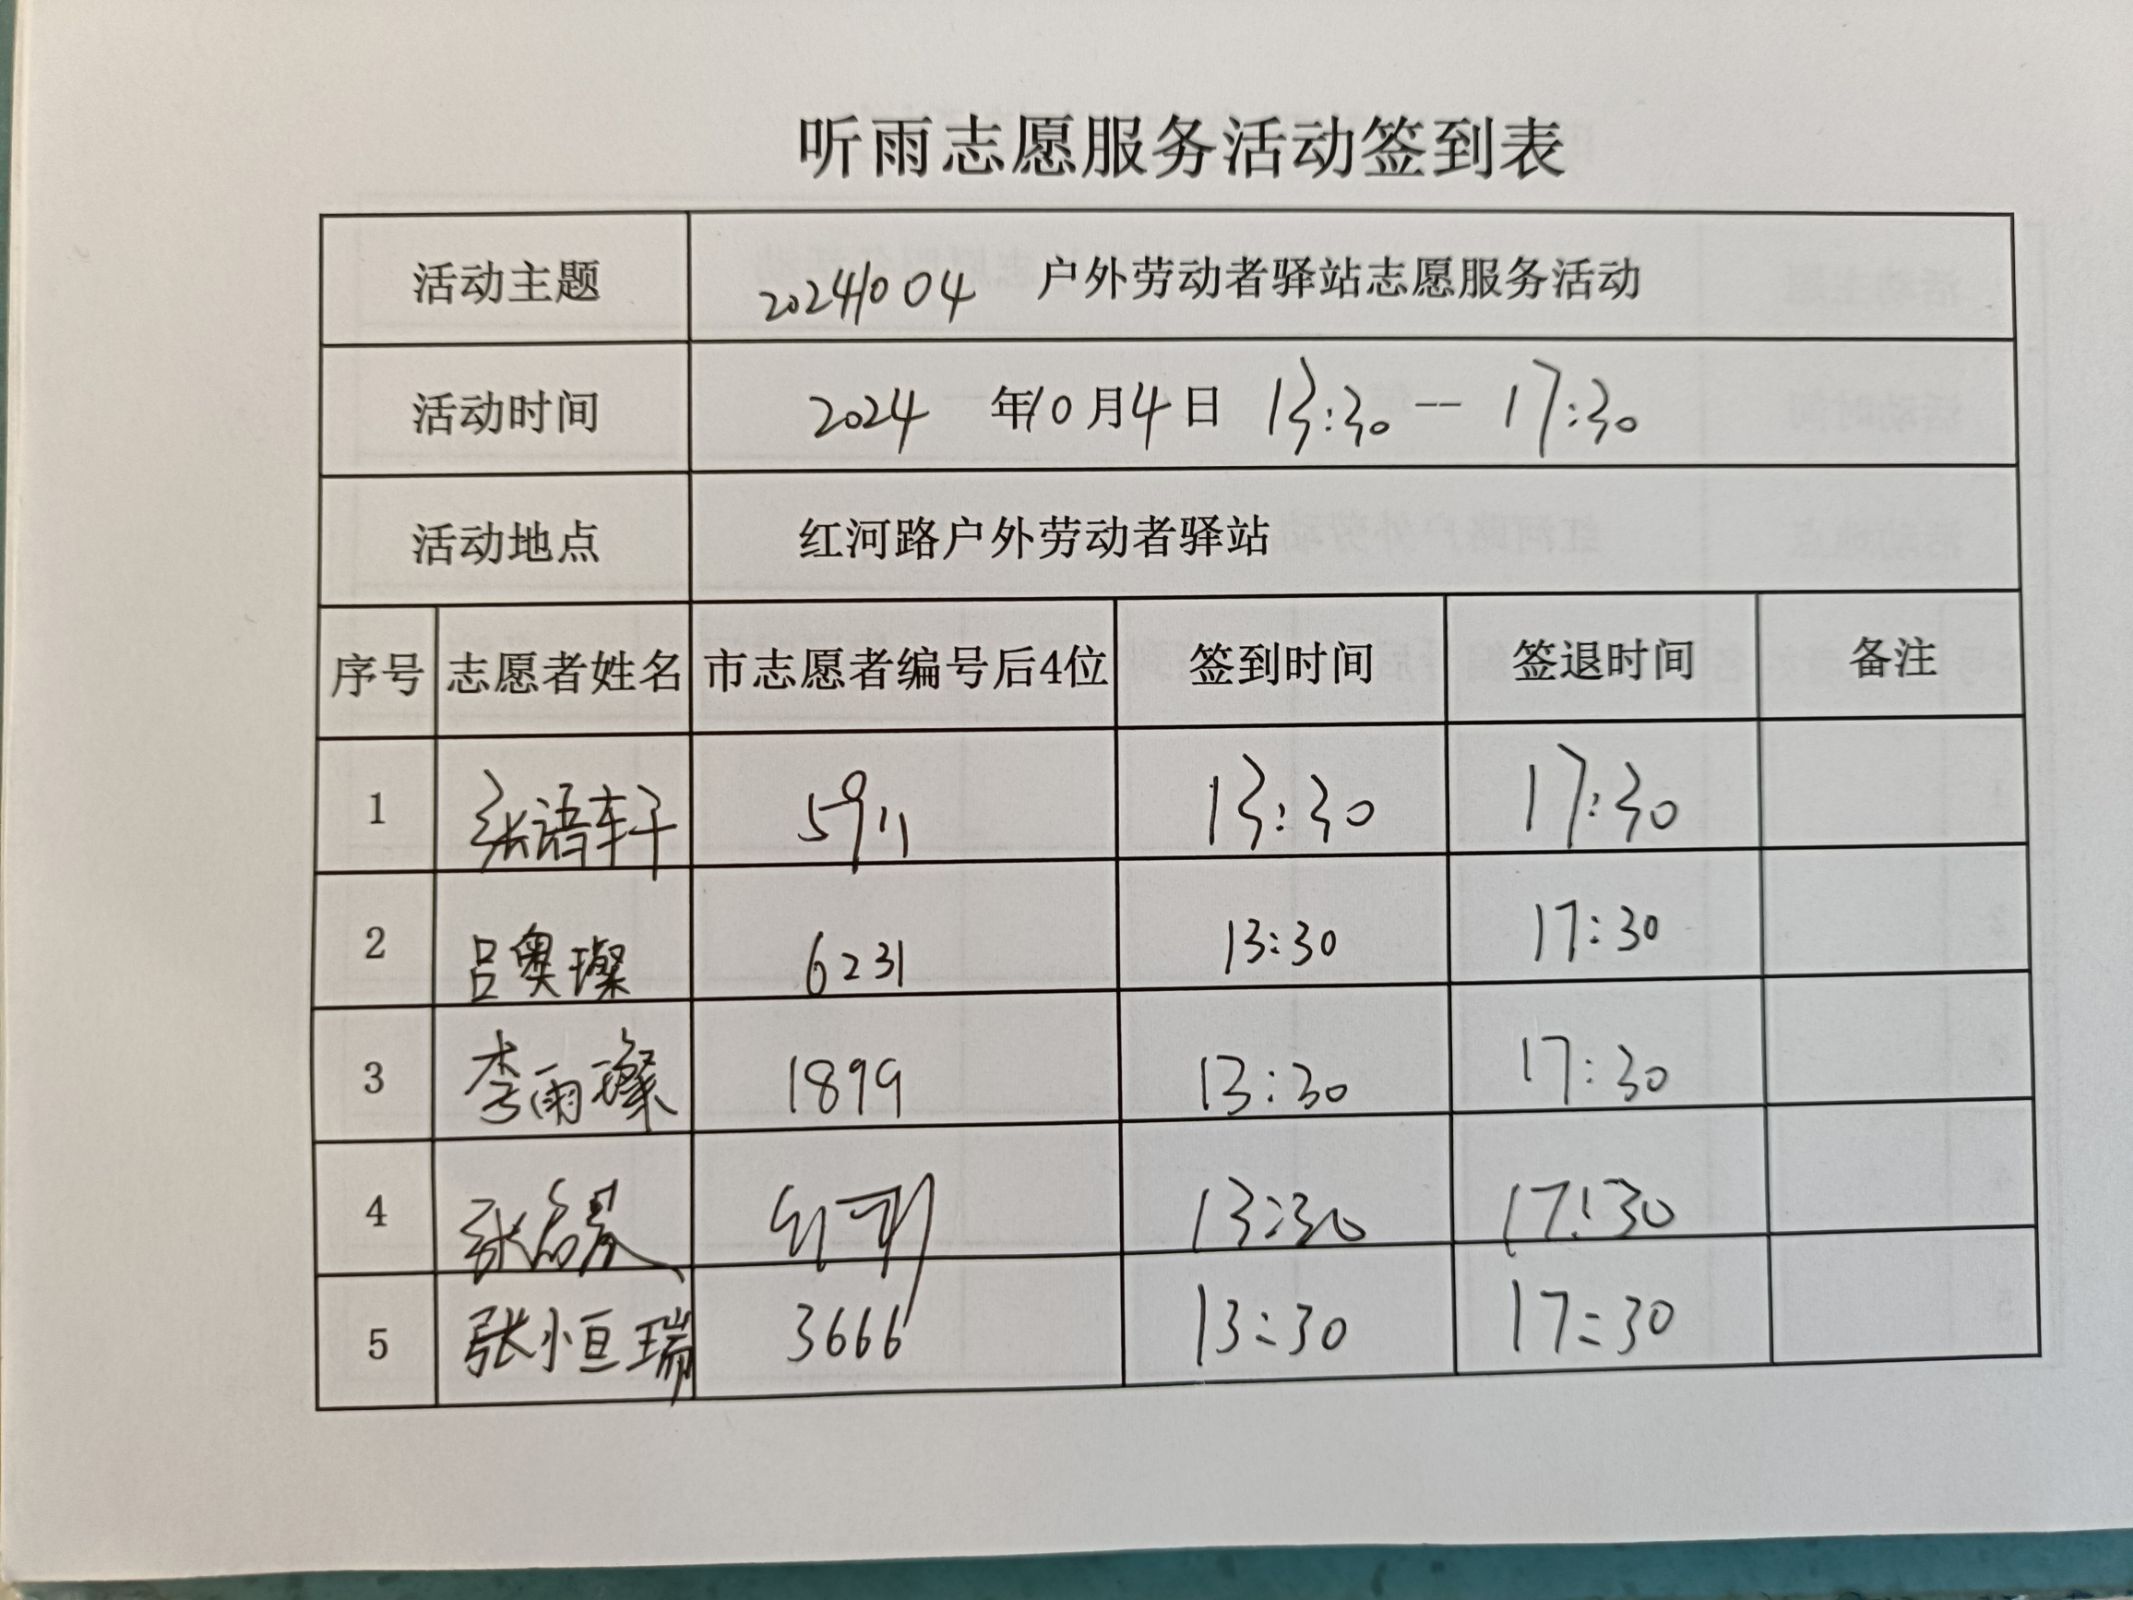 听雨志愿服务活动签到表
活动主题 20241004 户外劳动者驿站志愿服务活动
活动时间 2024 年10月4日 13:30-- 17:30
活动地点 红河路户外劳动者驿站
序号 志愿者姓名 市志愿者编号后4位 签到时间 签退时间 备注
1 张语轩 5911 13:30 17:30
2 吕奥璨 6231 13:30 17:30
3 李雨璨 1899 13:30 17:30
4 13:30 17:30
5 张恒瑞 3666 13:30 17:30